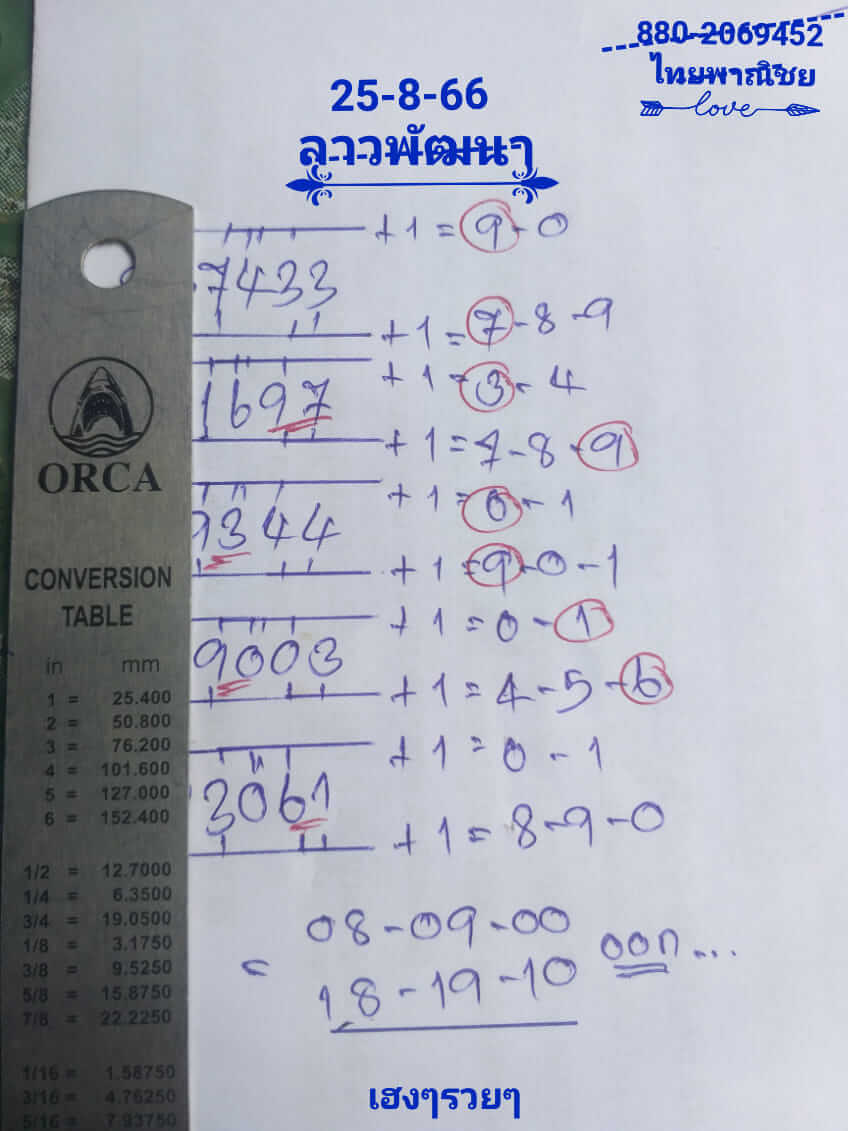 880-2069452
ไทยพาณิชย
love
25-8-66
ลาวพัฒนา
+1 = 9-0
7433
+1 = 7-8-9
+1 = 3-4
1697
+1 = 7-8-9
+1 = 0-1
344
+1 = 9-0-1
+1 = 0-1
9003
+1 = 4-5-6
+1 = 0-1
3061
+1 = 8-9-0
08-09-00
= ออก...
18-19-10
เฮงๆรวยๆ
ORCA
CONVERSION
TABLE
in mm
1 = 25.400
2 = 50.800
3 = 76.200
4 = 101.600
5 = 127.000
6 = 152.400
1/2 = 12.7000
1/4 = 6.3500
3/4 = 19.0500
1/8 = 3.1750
3/8 = 9.5250
5/8 = 15.8750
7/8 = 22.2250
1/16 = 1.58750
3/16 = 4.76250
5/16 = 7.93750